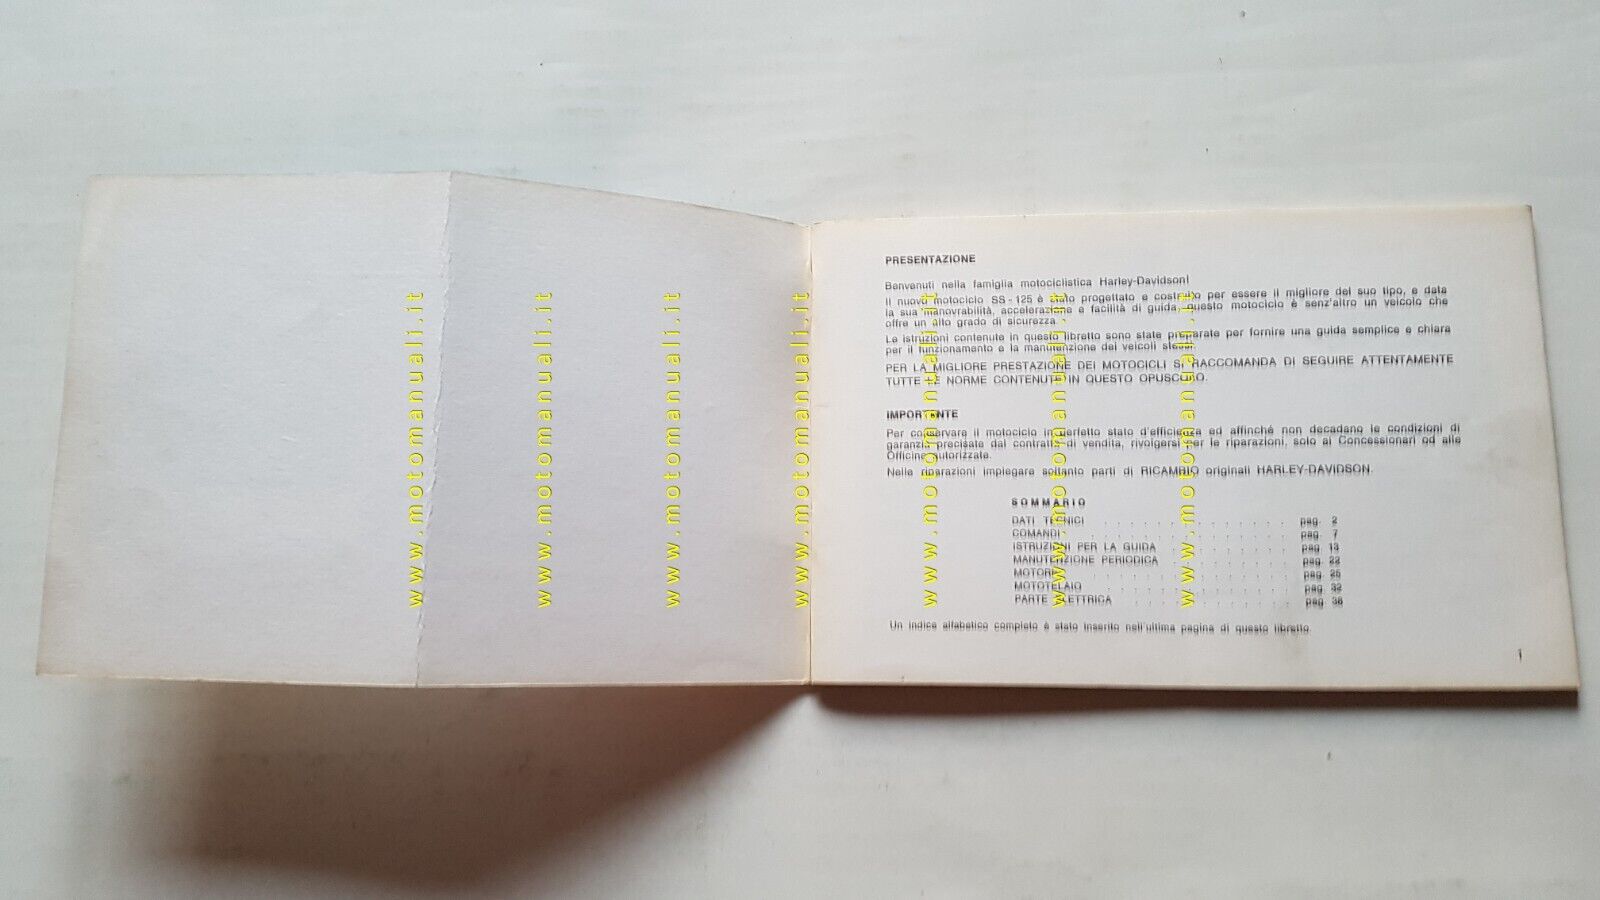 PRESENTAZIONE
Benvenuti nella famiglia motociclistica Harley-Davidson!
Il nuovo motociclo SS - 125 è stato progettato e costruito per essere il migliore del suo tipo, e data
la sua manovrabilità, accelerazione e facilità di guida, questo motociclo è senz'altro un veicolo che
offre un alto grado di sicurezza.
Le istruzioni contenute in questo libretto sono state preparate per fornire una guida semplice e chiara
per il funzionamento e la manutenzione dei veicoli stessi.
PER LA MIGLIORE PRESTAZIONE DEI MOTOCICLI SI RACCOMANDA DI SEGUIRE ATTENTAMENTE
TUTTE LE NORME CONTENUTE IN QUESTO OPUSCOLO.
IMPORTANTE
Per conservare il motociclo in perfetto stato d'efficienza ed affinché non decadano le condizioni di
garanzia precisate dal contratto di vendita, rivolgersi per le riparazioni, solo ai Concessionari od alle
Officine autorizzate.
Nelle riparazioni impiegare soltanto parti di RICAMBIO originali HARLEY-DAVIDSON.
SOMMARIO
DATI TECNICI . . . . . . . . . . . . pag. 2
COMANDI . . . . . . . . . . . . . pag. 7
ISTRUZIONI PER LA GUIDA . . . . . . . . pag. 13
MANUTENZIONE PERIODICA . . . . . . . . pag. 22
MOTORE . . . . . . . . . . . . . pag. 25
MOTOTELAIO . . . . . . . . . . . . pag. 32
PARTE ELETTRICA . . . . . . . . . . pag. 36
Un indice alfabetico completo è stato inserito nell'ultima pagina di questo libretto.
1
www.motomanuali.it
www.motomanuali.it
www.motomanuali.it
www.motomanuali.it
www.motomanuali.it
www.motomanuali.it
www.motomanuali.it